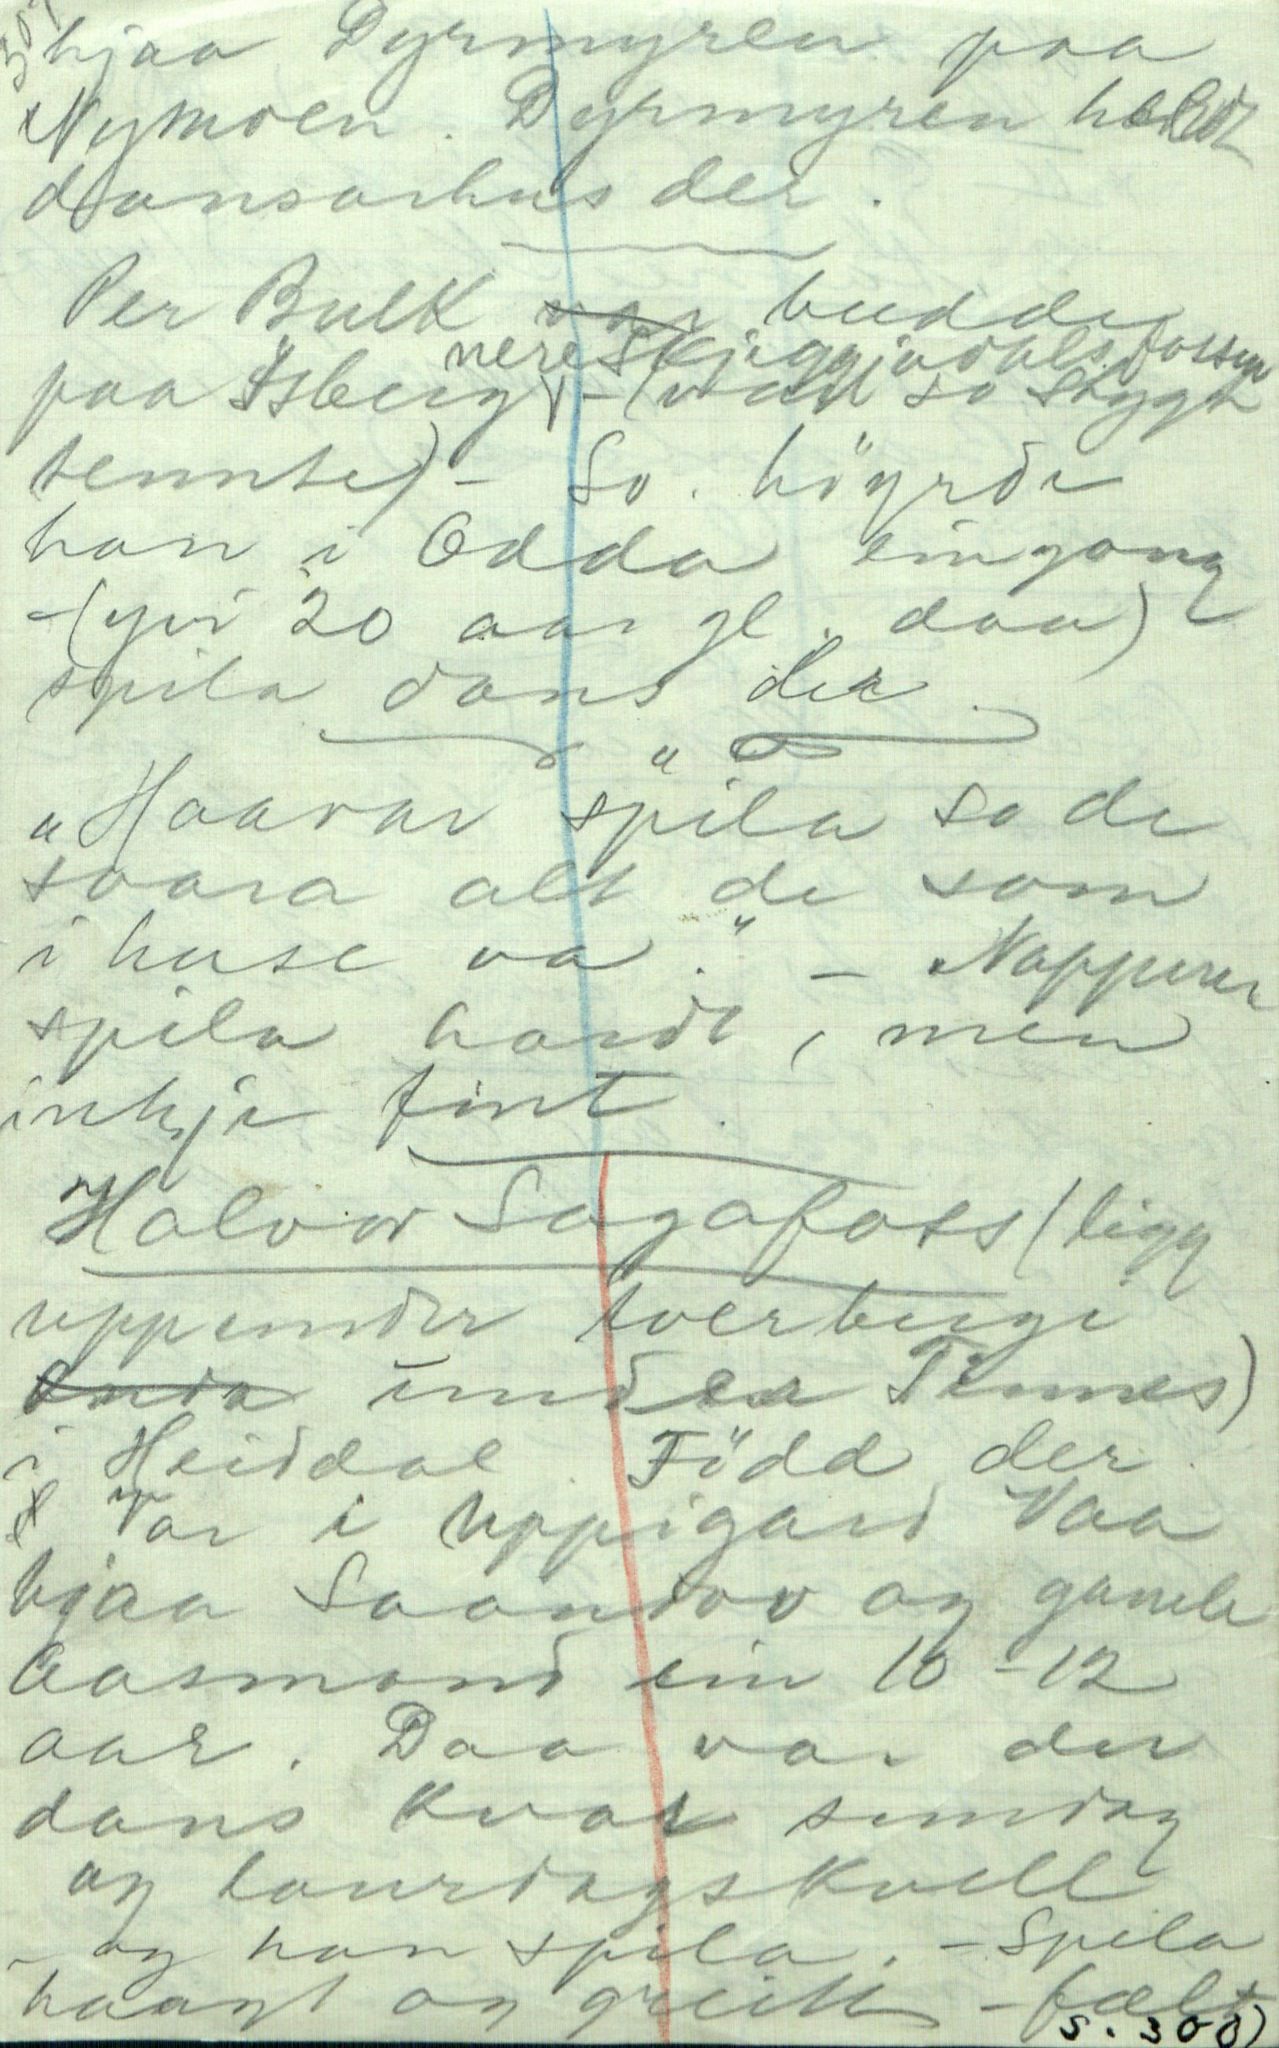 307
hjaa Dyrmyren paa
Nymoen. Dyrmyren heldt
dansarhus der.
Per Bulk var budde
nere Skjeggjadalsfossen
paa Isberg - (va so stygt
tennte) - So högrde
han i Odda eingong
- (yvi 20 aar gl. daa)
spila dans der.
"Haavar spila so de
svara alt de som
i huse va." - Napperen
spila hardt, men
inkje fint.
Halvor Sagafoss (ligg
uppunder tverbergi
under Tinnes)
i Heiddal. Född der.
Var i Uppigard Vaa
hjaa Saandov og gamle
Aasmond ein 10-12
aar. Daa var der
dans kvar sundag
og laurdagskvell
- og han spila. - Spila
haagt og greitt - fælt
s. 308)